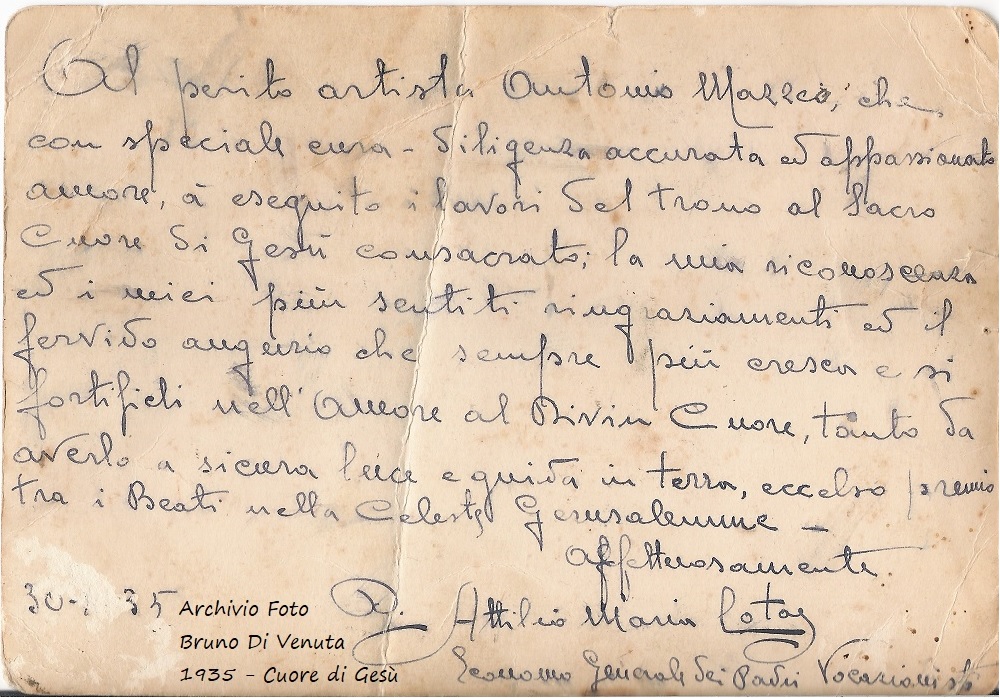 Al perito artista Antonio Mazzeo, che
con speciale cura - diligenza accurata ed appassionato
amore, à eseguito i lavori del trono al Sacro
Cuore di Gesù consacrato; la mia riconoscenza
ed i miei più sentiti ringraziamenti ed il
fervido augurio che sempre più cresca e si
fortifichi nell'Amore al Divin Cuore, tanto da
averlo a sicura luce e guida in terra, eccelso premio
tra i Beati nella Celeste Gerusalemme -
Affettuosamente
30- 35
Attilio Maria
Economo Generale dei Padri Vocazionisti
Archivio Foto
Bruno Di Venuta
1935 - Cuore di Gesù